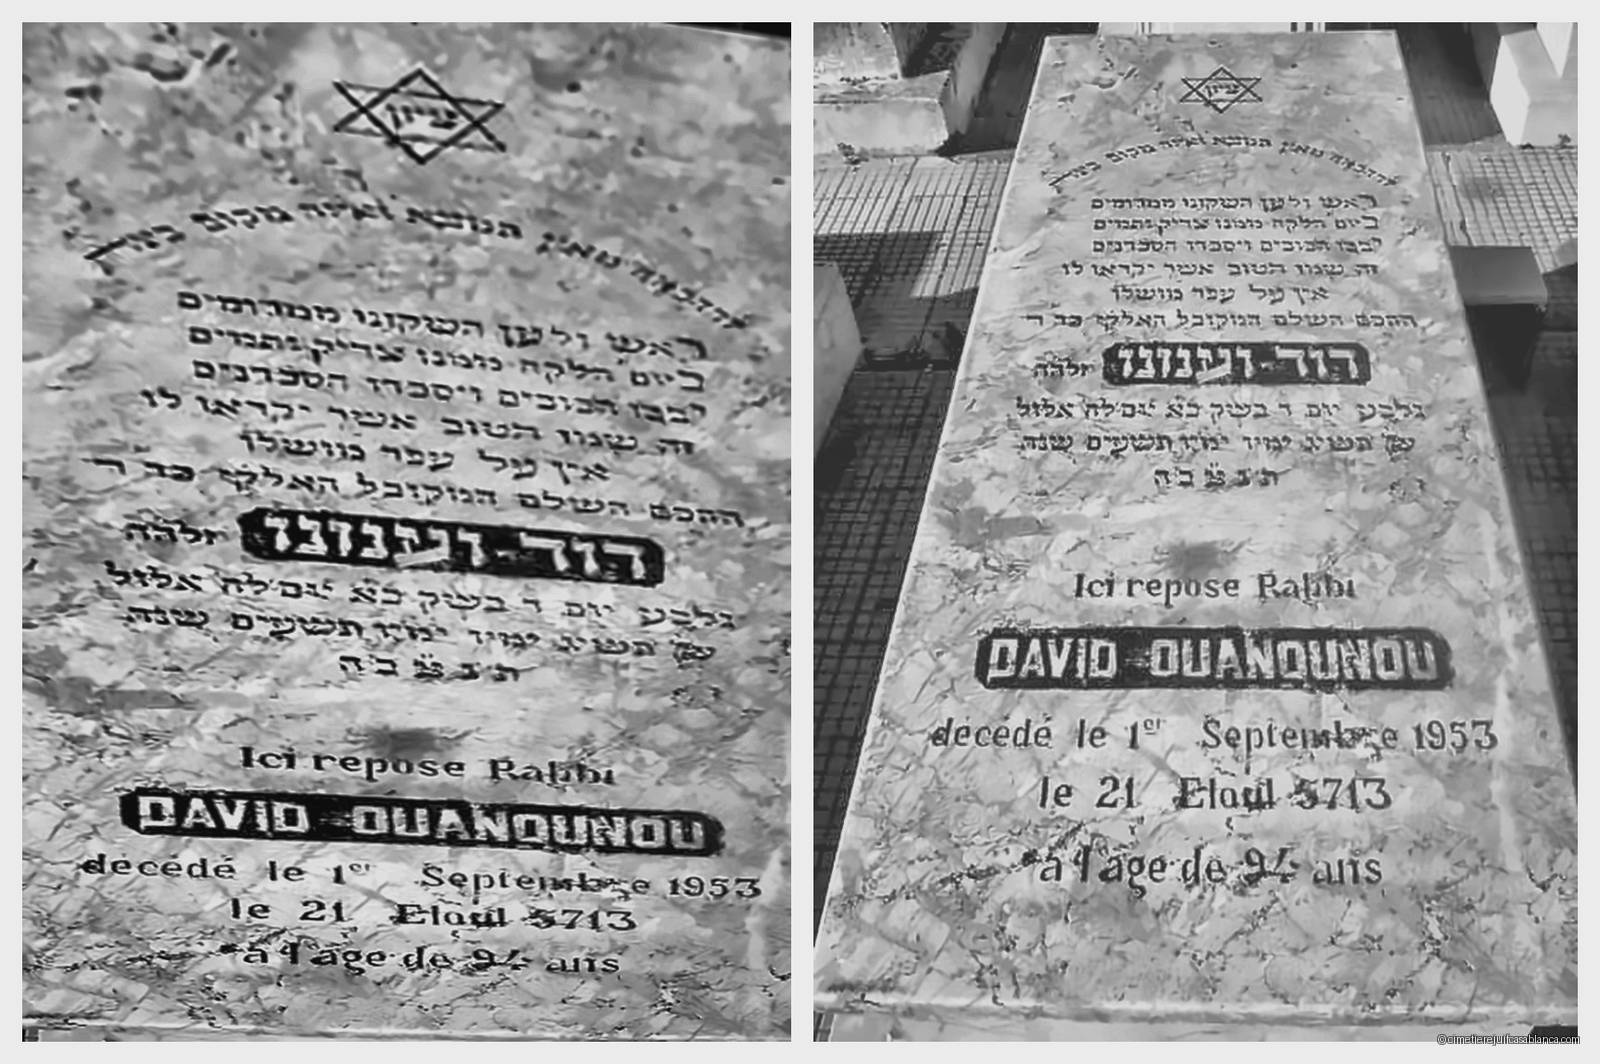 ציון
והחכמה מאין תמצא ואיזה מקום בינה
ראש ולען השקונו ממרומים
ביום הלקח ממנו צדיק ותמים
יבכו הכוכבים ויספדו
זה שמו הטוב אשר יקראו לו
אין על עפר מושלו
החכם השלם המקובל האלקי כה ר
דוד ועינונו זלהה
נלבע יום ד בשק כא ימ לח אלול
שנה
ת נ צ ב ה
Ici repose Rabbi
DAVID OUANOUNOU
décédé le 1er Septembre 1953
le 21 Eloul 5713
à l'age de 94 ans
ציון
והחכמה מאין תמצא ואיזה מקום בינה
ראש ולען השקונו ממרומים
ביום הלקח ממנו צדיק ותמים
יבכו הכוכבים ויספדו
זה שמו הטוב אשר יקראו לו
אין על עפר מושלו
החכם השלם המקובל האלקי כה ר
דוד ועינונו זלהה
נלבע יום ד בשק כא ימ לח אלול
שנה
ת נ צ ב ה
Ici repose Rabbi
DAVID OUANOUNOU
décédé le 1er Septembre 1953
le 21 Eloul 5713
à l'age de 94 ans
©cimetierejuifcasablanca.com